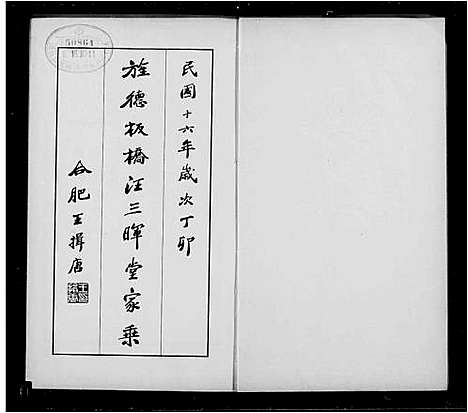 民國十六年歲次丁卯
旌德板橋汪三暉堂家乘
合肥王揖唐
50864